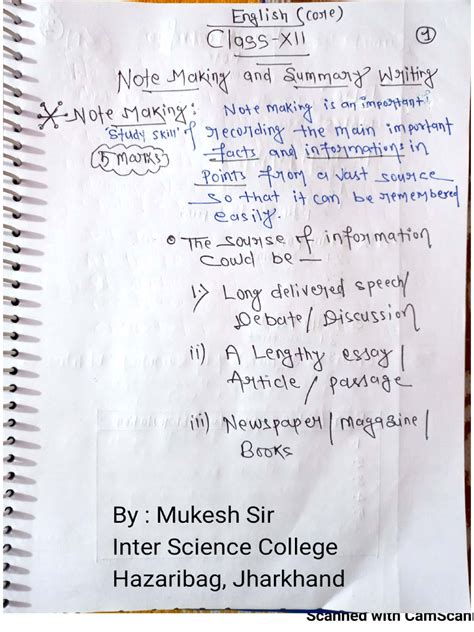 English (core)
Class-XII
1
Note Making and Summary Writing
Note Making: Note making is an important
'Study skill' of recording the main important
5 marks facts and informations in
Points from a vast source
so that it can be remembered
easily.
The sourse of information
Could be —
i.) Long delivered speech/
Debate/Discussion
ii) A Lengthy essay/
Article/passage
iii) Newspaper/Magazine/
Books
By : Mukesh Sir
Inter Science College
Hazaribag, Jharkhand
Scanned with CamScan